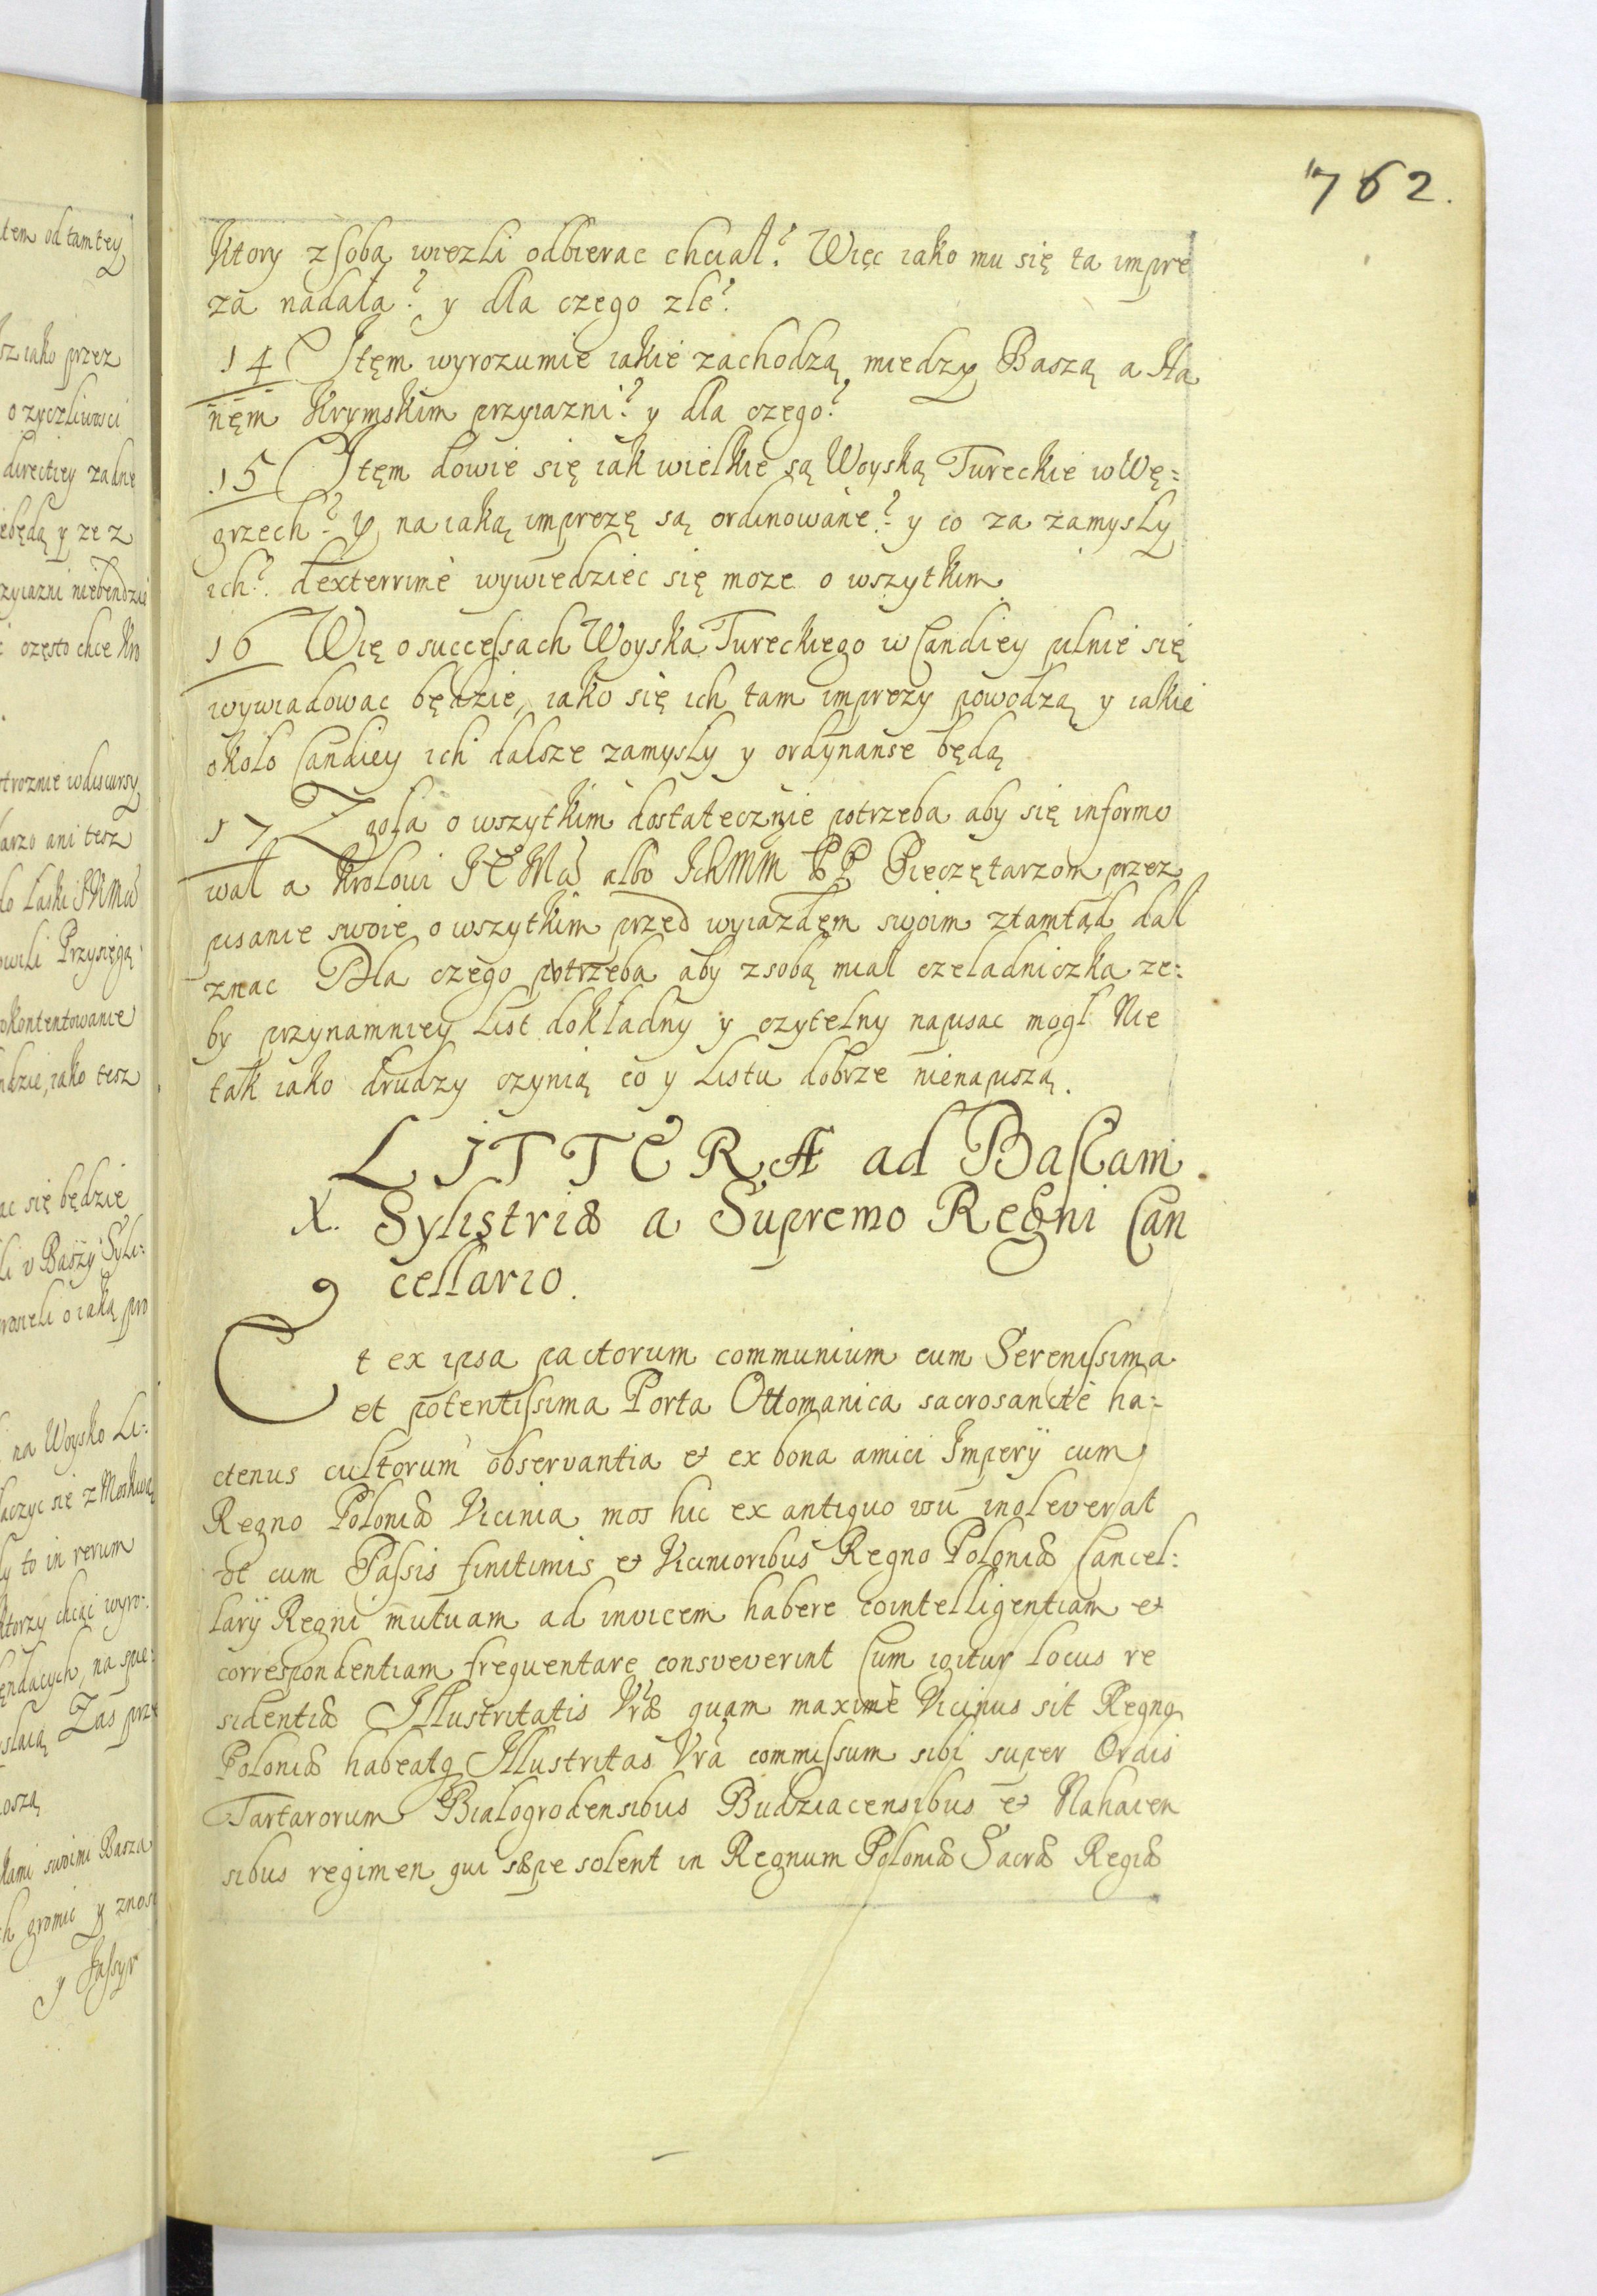 762.
Ktory z sobą wiezli odbierac chciał? Więc iako mu się ta impre
za nadała? y dla czego zle?
14 Itęm wyrozumie iakie zachodzą miedzy Baszą a Ha
nęm Krymskim przyiazni? y dla czego?
15 Itęm dowie się iak wielkie są Woyską Tureckie w Wę:
grzech? y na iaką imprezę są ordinowane? y co za zamysły
ich? dexterrimè wywiedziec się moze o wszytkim
16 Wię o successach Woyska Tureckiego w Candiey pilnie się
wywiadowac będzie, iako się ich tam imprezy powodzą y iakie
około Candiey ich dalsze zamysły y ordynanse będą
17 Zgoła o wszytkim dostatecznie potrzeba aby się informo
wał a Krolowi albo IchMM PP Pieczętarzom przez
pisanie swoie o wszytkim przed wyiazdęm swoim ztamtąd dał
znac Dla czego potrzeba aby z sobą miał czeladniczka ze:
by przynamniey List dokładny y czytelny napisac mogł Nie
tak iako drudzy czynią co y Listu dobrze nienapiszą.
LITTERÆ ad Bassam
X. Sylistriæ a Supremo Regni Can
9 cellario.
Et ex ipsa pactorum communium cum Serenissima
et potentissima Porta Ottomanica sacrosanctè ha:
ctenus cultorum observantia & ex bona amici Imperÿ cum
Regno Poloniæ Vicinia mos hic ex antiquo usu inoleverat
ut cum Passis finitimis & Vicinioribus Regno Poloniæ Cancel:
larÿ Regni mutuam ad invicem habere cointelligentiam &
correspondentiam frequentare consveverint Cum igitur Locus re
sidentiæ Illustritatis Vræ quam maximè Vicinus sit Regno
Poloniæ habeatq Illustritas Vra commissum sibi super Ordis
Tartarorum Bialogrodensibus Budziacensibus & Nahaien
sibus regimen qui sæpe solent in Regnum Poloniæ Sacræ Regiæ